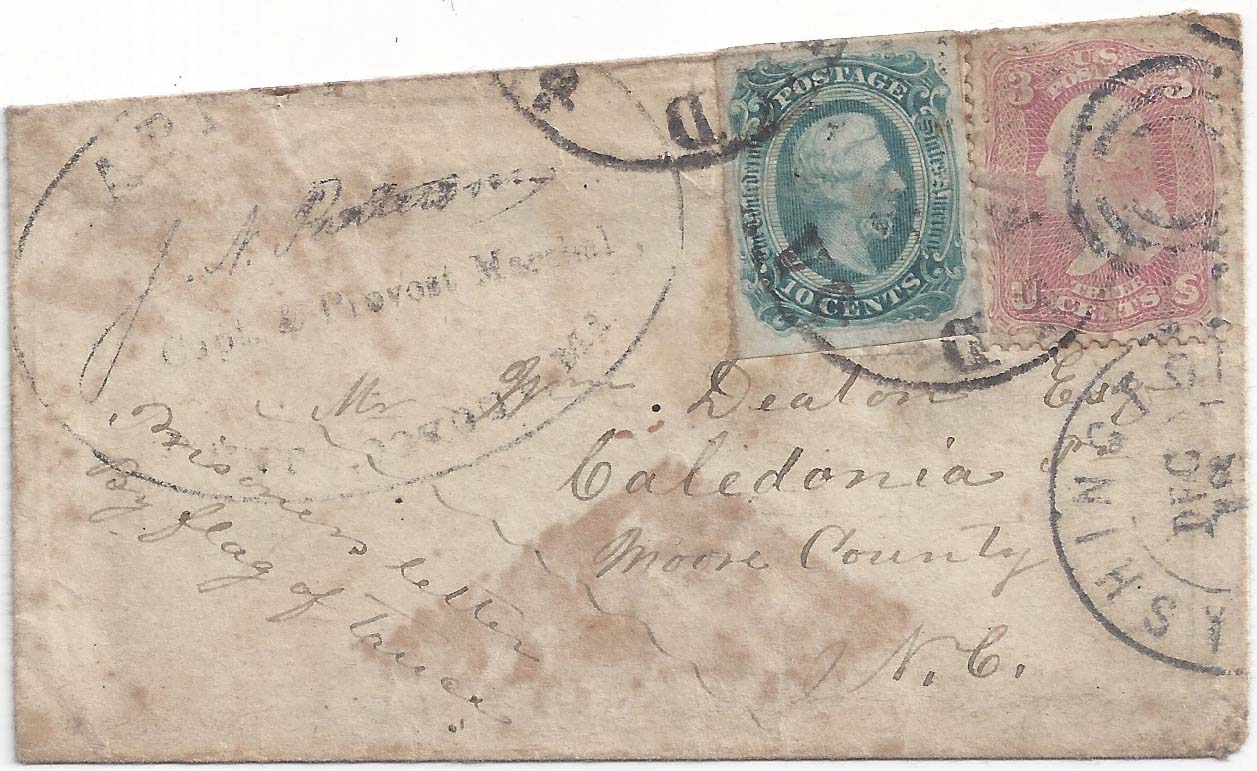 APP
J. N. Patterson
Capt. & Provost Marshal,
POSTAGE
The Confederate States of America
10 CENTS
3 U.S. POSTAGE 3
U THREE CENTS S
D
D
Mr Wm Deaton Esq
Caledonia P.
Moore County
N. C.
Prisoners letter
By flag of truce
DEC